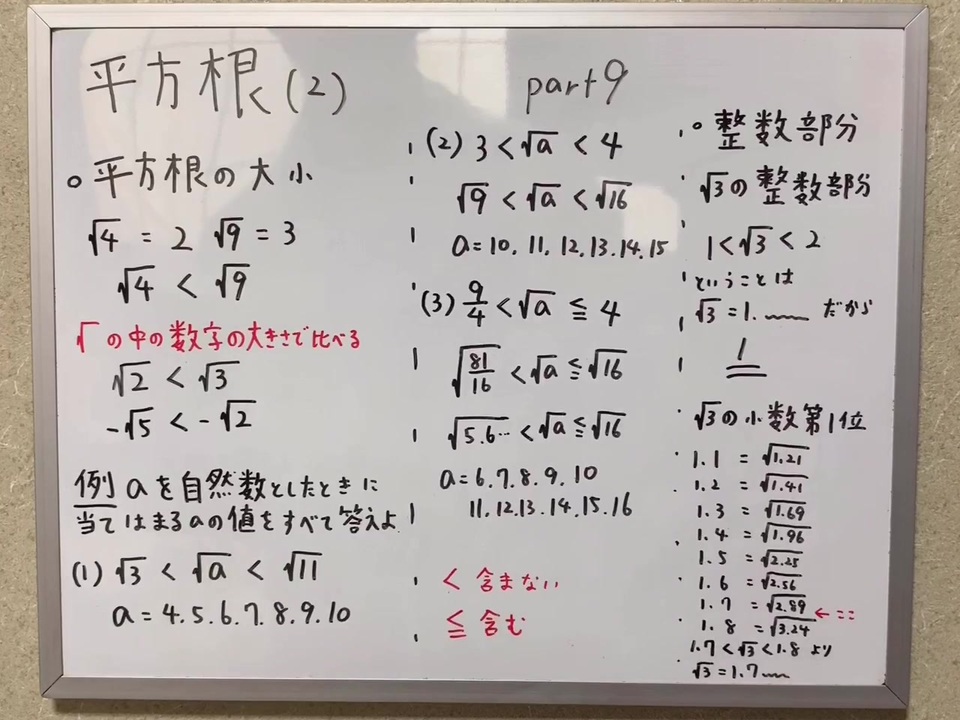 平方根(2)
part9
○平方根の大小
√4 = 2 √9 = 3
√4 < √9
√の中の数字の大きさで比べる
√2 < √3
-√5 < -√2
例 aを自然数としたときに
当てはまるaの値をすべて答えよ
(1) √3 < √a < √11
a = 4.5.6.7.8.9.10
(2) 3 < √a < 4
√9 < √a < √16
a = 10. 11. 12. 13. 14. 15
(3) 9/4 < √a ≦ 4
√(81/16) < √a ≦ √16
√5.6… < √a ≦ √16
a = 6.7.8.9.10
11.12.13.14.15.16
< 含まない
≦ 含む
○整数部分
√3の整数部分
1 < √3 < 2
ということは
√3 = 1.﹏﹏ だから
1
√3の小数第1位
1.1 = √1.21
1.2 = √1.41
1.3 = √1.69
1.4 = √1.96
1.5 = √2.25
1.6 = √2.56
1.7 = √2.89
←ここ
1.8 = √3.24
1.7 < √3 < 1.8 より
√3 = 1.7﹏﹏